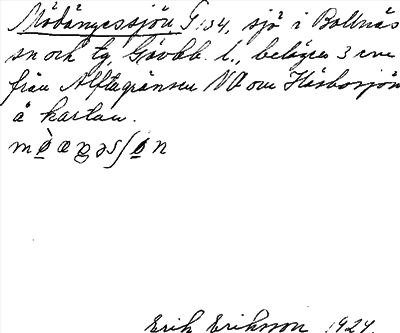 Mödängessjön G:34, sjö i Bollnäs
sn och tg, Gävleb. l., belägen 3 cm
från Alftagränsen NO om Häsbosjön
å kartan.
Erik Eriksson 1924.